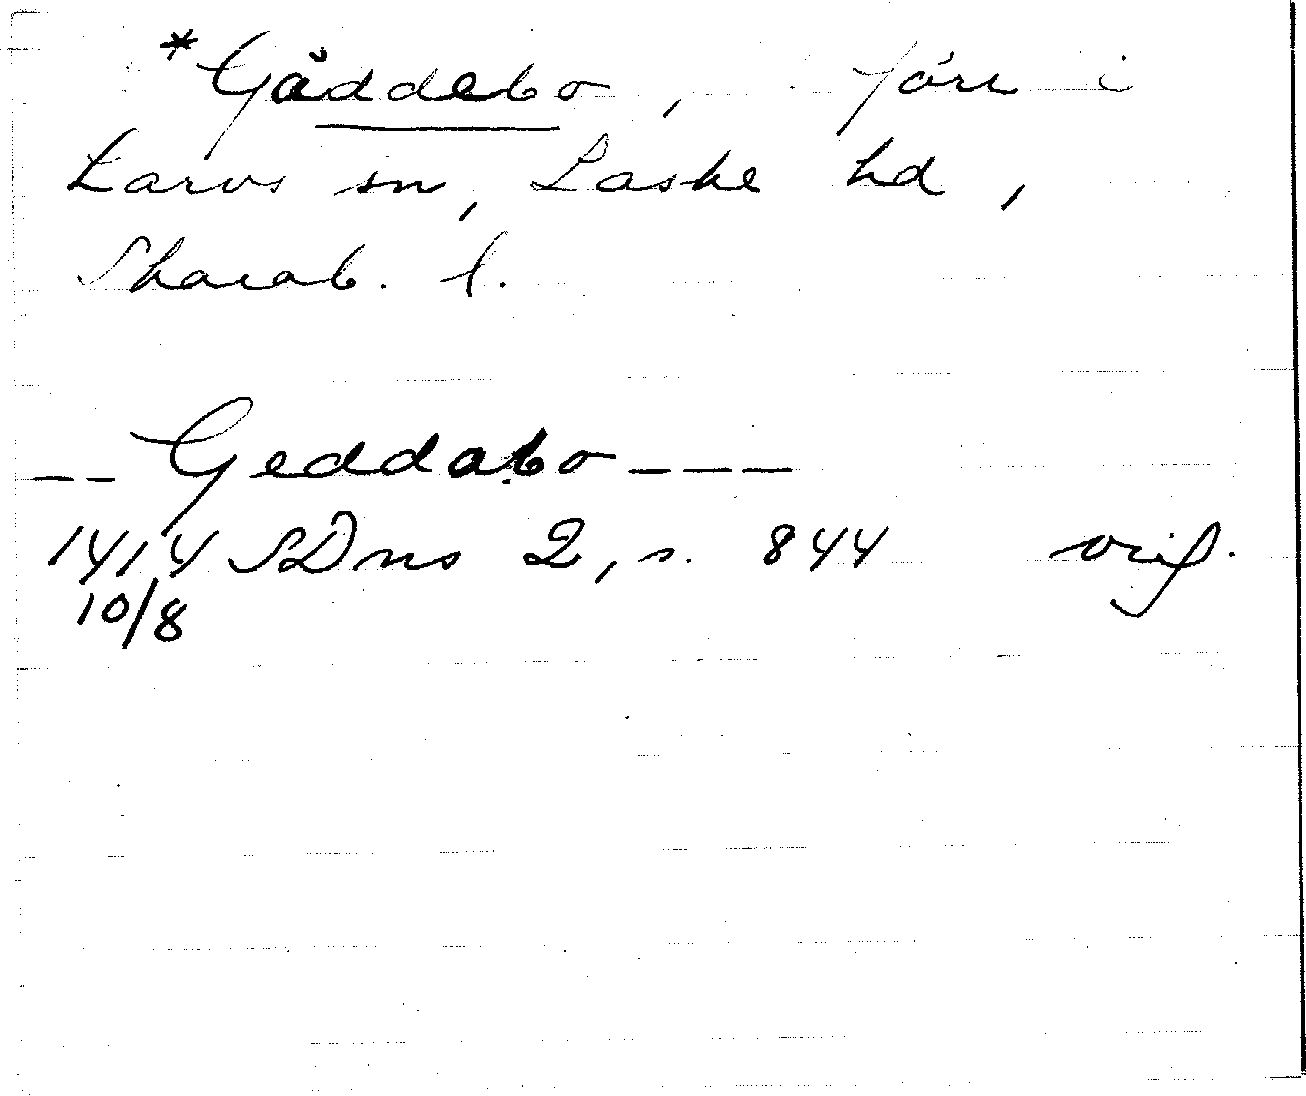 *Gäddebo, förr i
Larvs sn, Laske hd,
Skarab. l.
-- Geddabo ---
1414 SDns 2, s. 844 orig.
10/8